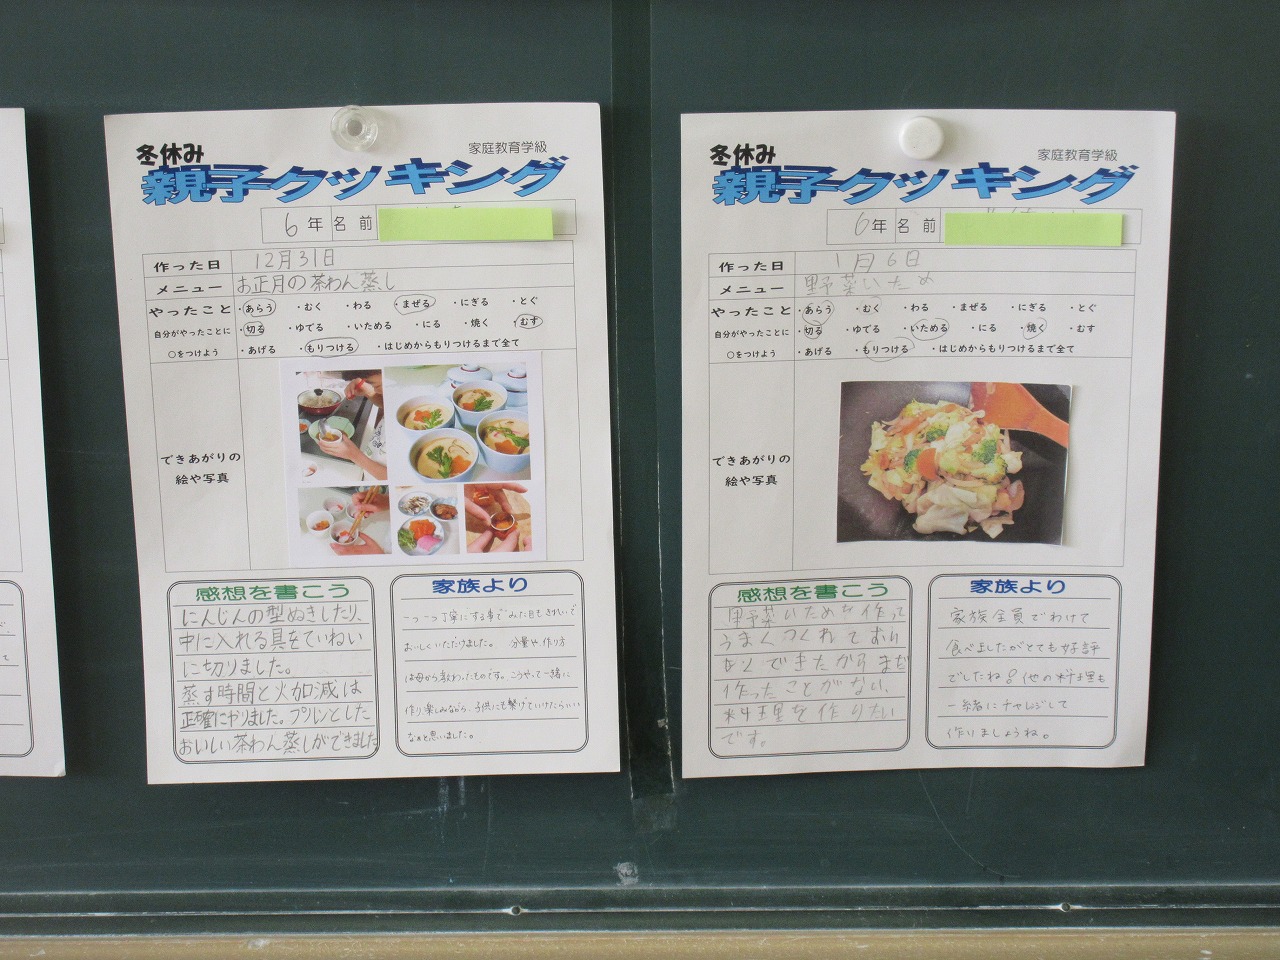 冬休み
家庭教育学級
親子クッキング
6年 名前
作った日 12月31日
メニュー お正月の茶わん蒸し
やったこと ・あらう ・むく ・わる ・まぜる ・にぎる ・とぐ
自分がやったことに ・切る ・ゆでる ・いためる ・にる ・焼く ・むす
○をつけよう ・あげる ・もりつける ・はじめからもりつけるまで全て
できあがりの
絵や写真
感想を書こう
にんじんの型ぬきしたり、
中に入れる具をていねい
に切りました。
蒸す時間と火加減は
正確にやりました。プリンとした
おいしい茶わん蒸しができました
家族より
一つ一つ丁寧にする事でみた目もきれいで
おいしくいただけました。 分量や作り方
は母から教わったものです。こうやって一緒に
作り楽しみながら、子供にも繋げていけたらいい
なぁと思いました。
冬休み
家庭教育学級
親子クッキング
6年 名前
作った日 1月6日
メニュー 野菜いため
やったこと ・あらう ・むく ・わる ・まぜる ・にぎる ・とぐ
自分がやったことに ・切る ・ゆでる ・いためる ・にる ・焼く ・むす
○をつけよう ・あげる ・もりつける ・はじめからもりつけるまで全て
できあがりの
絵や写真
感想を書こう
野菜いためを作って
うまくつくれて
できたからまだ
作ったことがない、
料理を作りたい
です。
家族より
家族全員でわけて
食べましたがとても好評
でしたね!他の料理も
一緒にチャレンジして
作りましょうね。